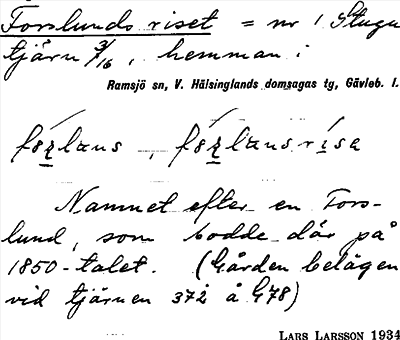 Forslunds riset = nr 1 Stuga
tjärn 3/16, hemman i
Ramsjö sn, V. Hälsinglands domsagas tg, Gävleb. l.
Namnet efter en Fors-
lund, som bodde där på
1850-talet. (Gården belägen
vid tjärnen 372 å G78)
LARS LARSSON 1934